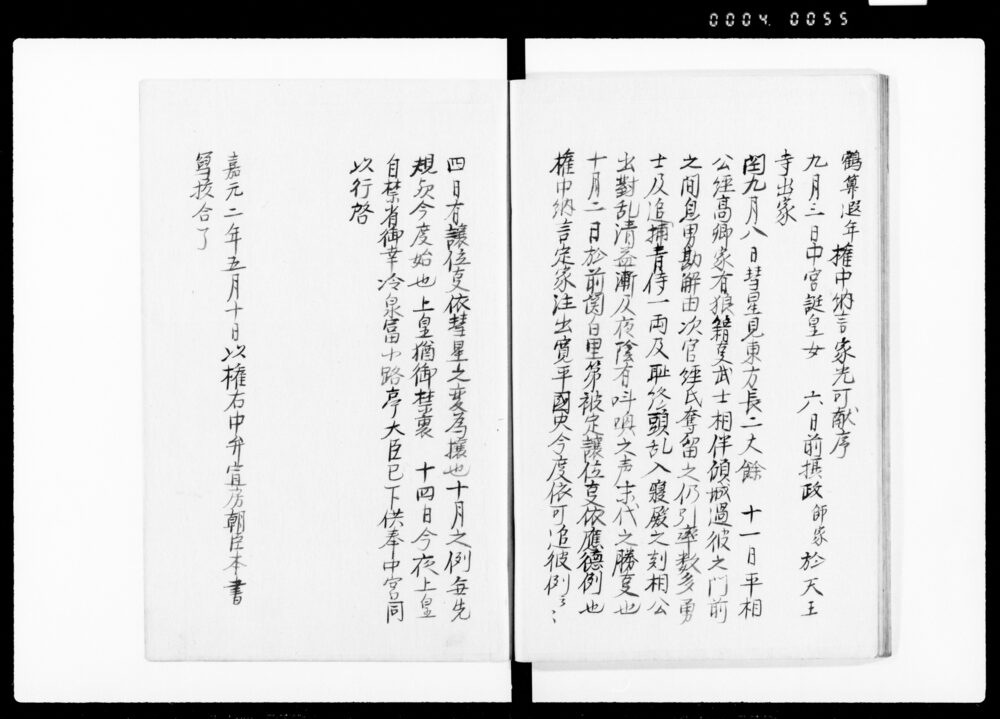 0004.0055
鶴算遐年 権中納言家光可献序
九月三日中宮誕皇女 六日前摂政師家於天王
寺出家
閏九月八日彗星見東方長二丈餘 十一日平相
公経高卿家有狼籍㕝武士相伴傾城過彼之門前
之間息男勘解由次官経氏奪留之仍引率数多勇
士及追捕青侍一両及恥終頭乱入寝殿之刻相公
出對乱清益漸及夜陰有叫喚之声末代之勝㕝也
十月二日於前関白里第被定譲位㕝依應徳例也
権中納言定家注出寛平國史今度依可追彼例々
四日有譲位㕝依彗星之変為攘也十月之例毎先
規欤今度始也 上皇猶御禁裏 十四日今夜上皇
自禁省御幸冷泉富小路亭大臣已下供奉中宮同
以行啓
嘉元二年五月十日以権右中弁宣房朝臣本書
写校合了